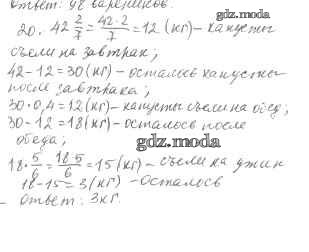 Ответ: 48 вареников.
gdz.moda
20. 42 2/7 = 42·2/7 = 12 (кг) – капусты
съели на завтрак;
42 – 12 = 30 (кг) – осталось капусты
после завтрака;
30·0,4 = 12 (кг) – капусты съели на обед;
30 – 12 = 18 (кг) – осталось после
обеда;
gdz.moda
18·5/6 = 18·5/6 = 15 (кг) – съели на ужин
18 – 15 = 3 (кг) – осталось
– Ответ: 3 кг.